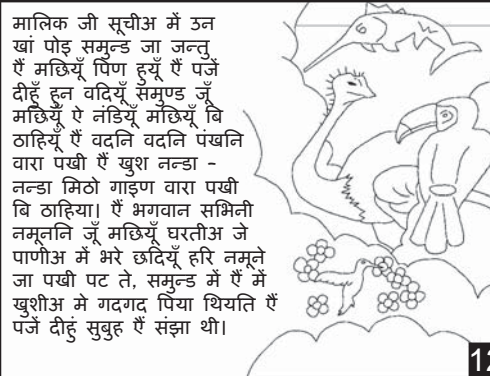 मालिक जी सूचीअ में उन
खां पोइ समुन्ड जा जन्तु
ऐं मछियूँ पिण हुयूँ ऐं पजें
दीहूँ हुन वदियूँ समुण्ड जूँ
मछियूँ ऐ नंडियूँ मछियूँ बि
ठाहियूँ ऐं वदनि वदनि पंखनि
वारा पखी ऐं खुश नन्डा -
नन्डा मिठो गाइण वारा पखी
बि ठाहिया। ऐं भगवान सभिनी
नमूननि जूँ मछियूँ घरतीअ जे
पाणीअ में भरे छदियूँ हरि नमूने
जा पखी पट ते, समुन्ड में ऐं में
खुशीअ मे गदगद पिया थियति ऐं
पजें दीहुं सुबुह ऐं संझा थी।